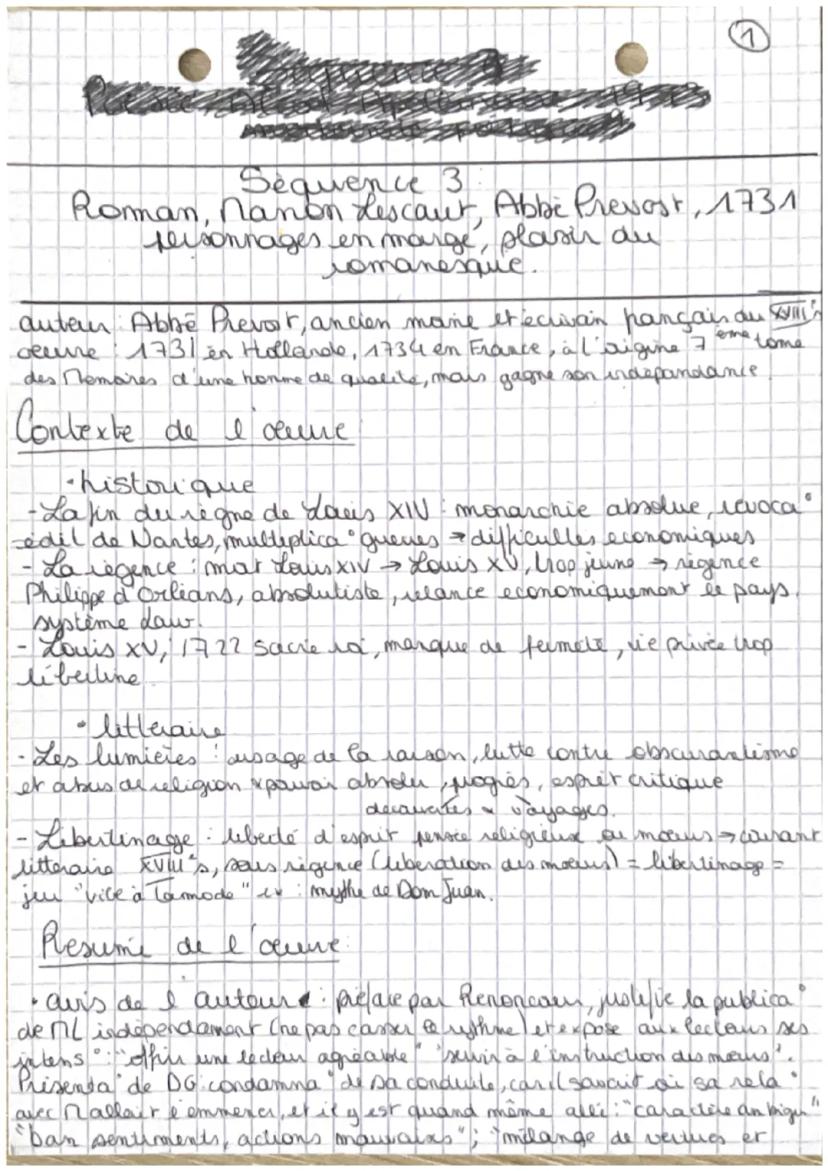 1
Séquence 3
Roman, Manon Lescaut, Abbé Prevost, 1731
personnages en marge, plaisir du
romanesque.
auteur : Abbé Prevost, ancien moine et écrivain français du XVIII°s
oeuvre : 1731 en Hollande, 1734 en France, à l'origine 7ème tome
des Memoires d'une homme de qualité, mais gagne son indépandance
Contexte de l'œuvre
• historique
- La fin du règne de Louis XIV : monarchie absolue, revoca°
édit de Nantes, multiplica° guerres → difficultes economiques
- La régence : mort Louis XIV → Louis XV, trop jeune → régence
Philippe d'Orléans, absolutiste, relance economiquement le pays.
système Law.
- Louis XV, 1722 sacré roi, manque de fermeté, vie privée trop
libertine.
• littéraire
- Les lumières : usage de la raison, lutte contre obscurantisme
et abus de religion x pouvoir absolu, progrès, esprit critique
découvertes x voyages.
- Libertinage : liberté d'esprit pensée religieux ou mœurs → courant
litteraire XVIII°s, sous régence (liberation des mœurs) = libertinage =
jeu "vice à la mode" ex : mythe de Dom Juan.
Resumé de l'œuvre
• avis de l'auteur : préface par Renoncour, justifie la publica°
de ML indépendament (ne pas casser le rythme) et expose aux lecteurs ses
intens° : "offrir une lecteur agréable" "servir à l'instruction des mœurs".
Présenta° de DG : condamna° de sa conduite, car il savait où sa rela°
avec M allait l'emmener, et il y est quand même allé : "caractère ambigu"
"bon sentiments, actions mauvaises" ; "mélange de vertues et